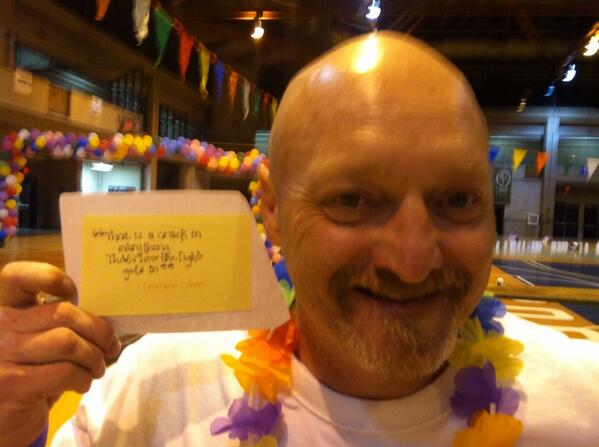 "There is a crack in
everything.
That's how the light
gets in"
- Leonard Cohen